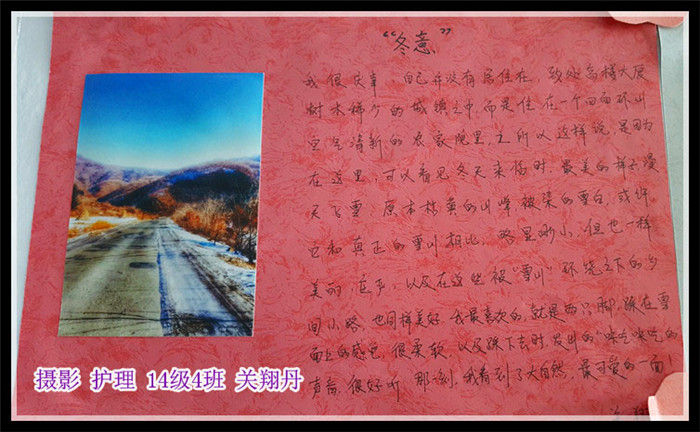 “冬意”
我很庆幸，自己并没有居住在，致处高楼大厦
树木稀少的城镇之中，而是住在一个四面环山
空气清新的农家院里，之所以这样说，是因为
在这里，可以看见冬天来临时，最美的样子漫
天飞雪，原本枯黄的山峰被染的雪白，或许
它和真正的雪山相比，略显渺小，但也一样
美丽，在乎，以及在这些被“雪山”环绕之下的乡
间小路，也同样美好，我最喜欢的，就是两只脚，踩在雪
面上的感觉，很柔软，以及踩下去时，发出的“咯吃咯吃的
声音，很好听，那一刻，我看到了大自然，最可爱的一面！
摄影 护理 14级4班 关翔丹